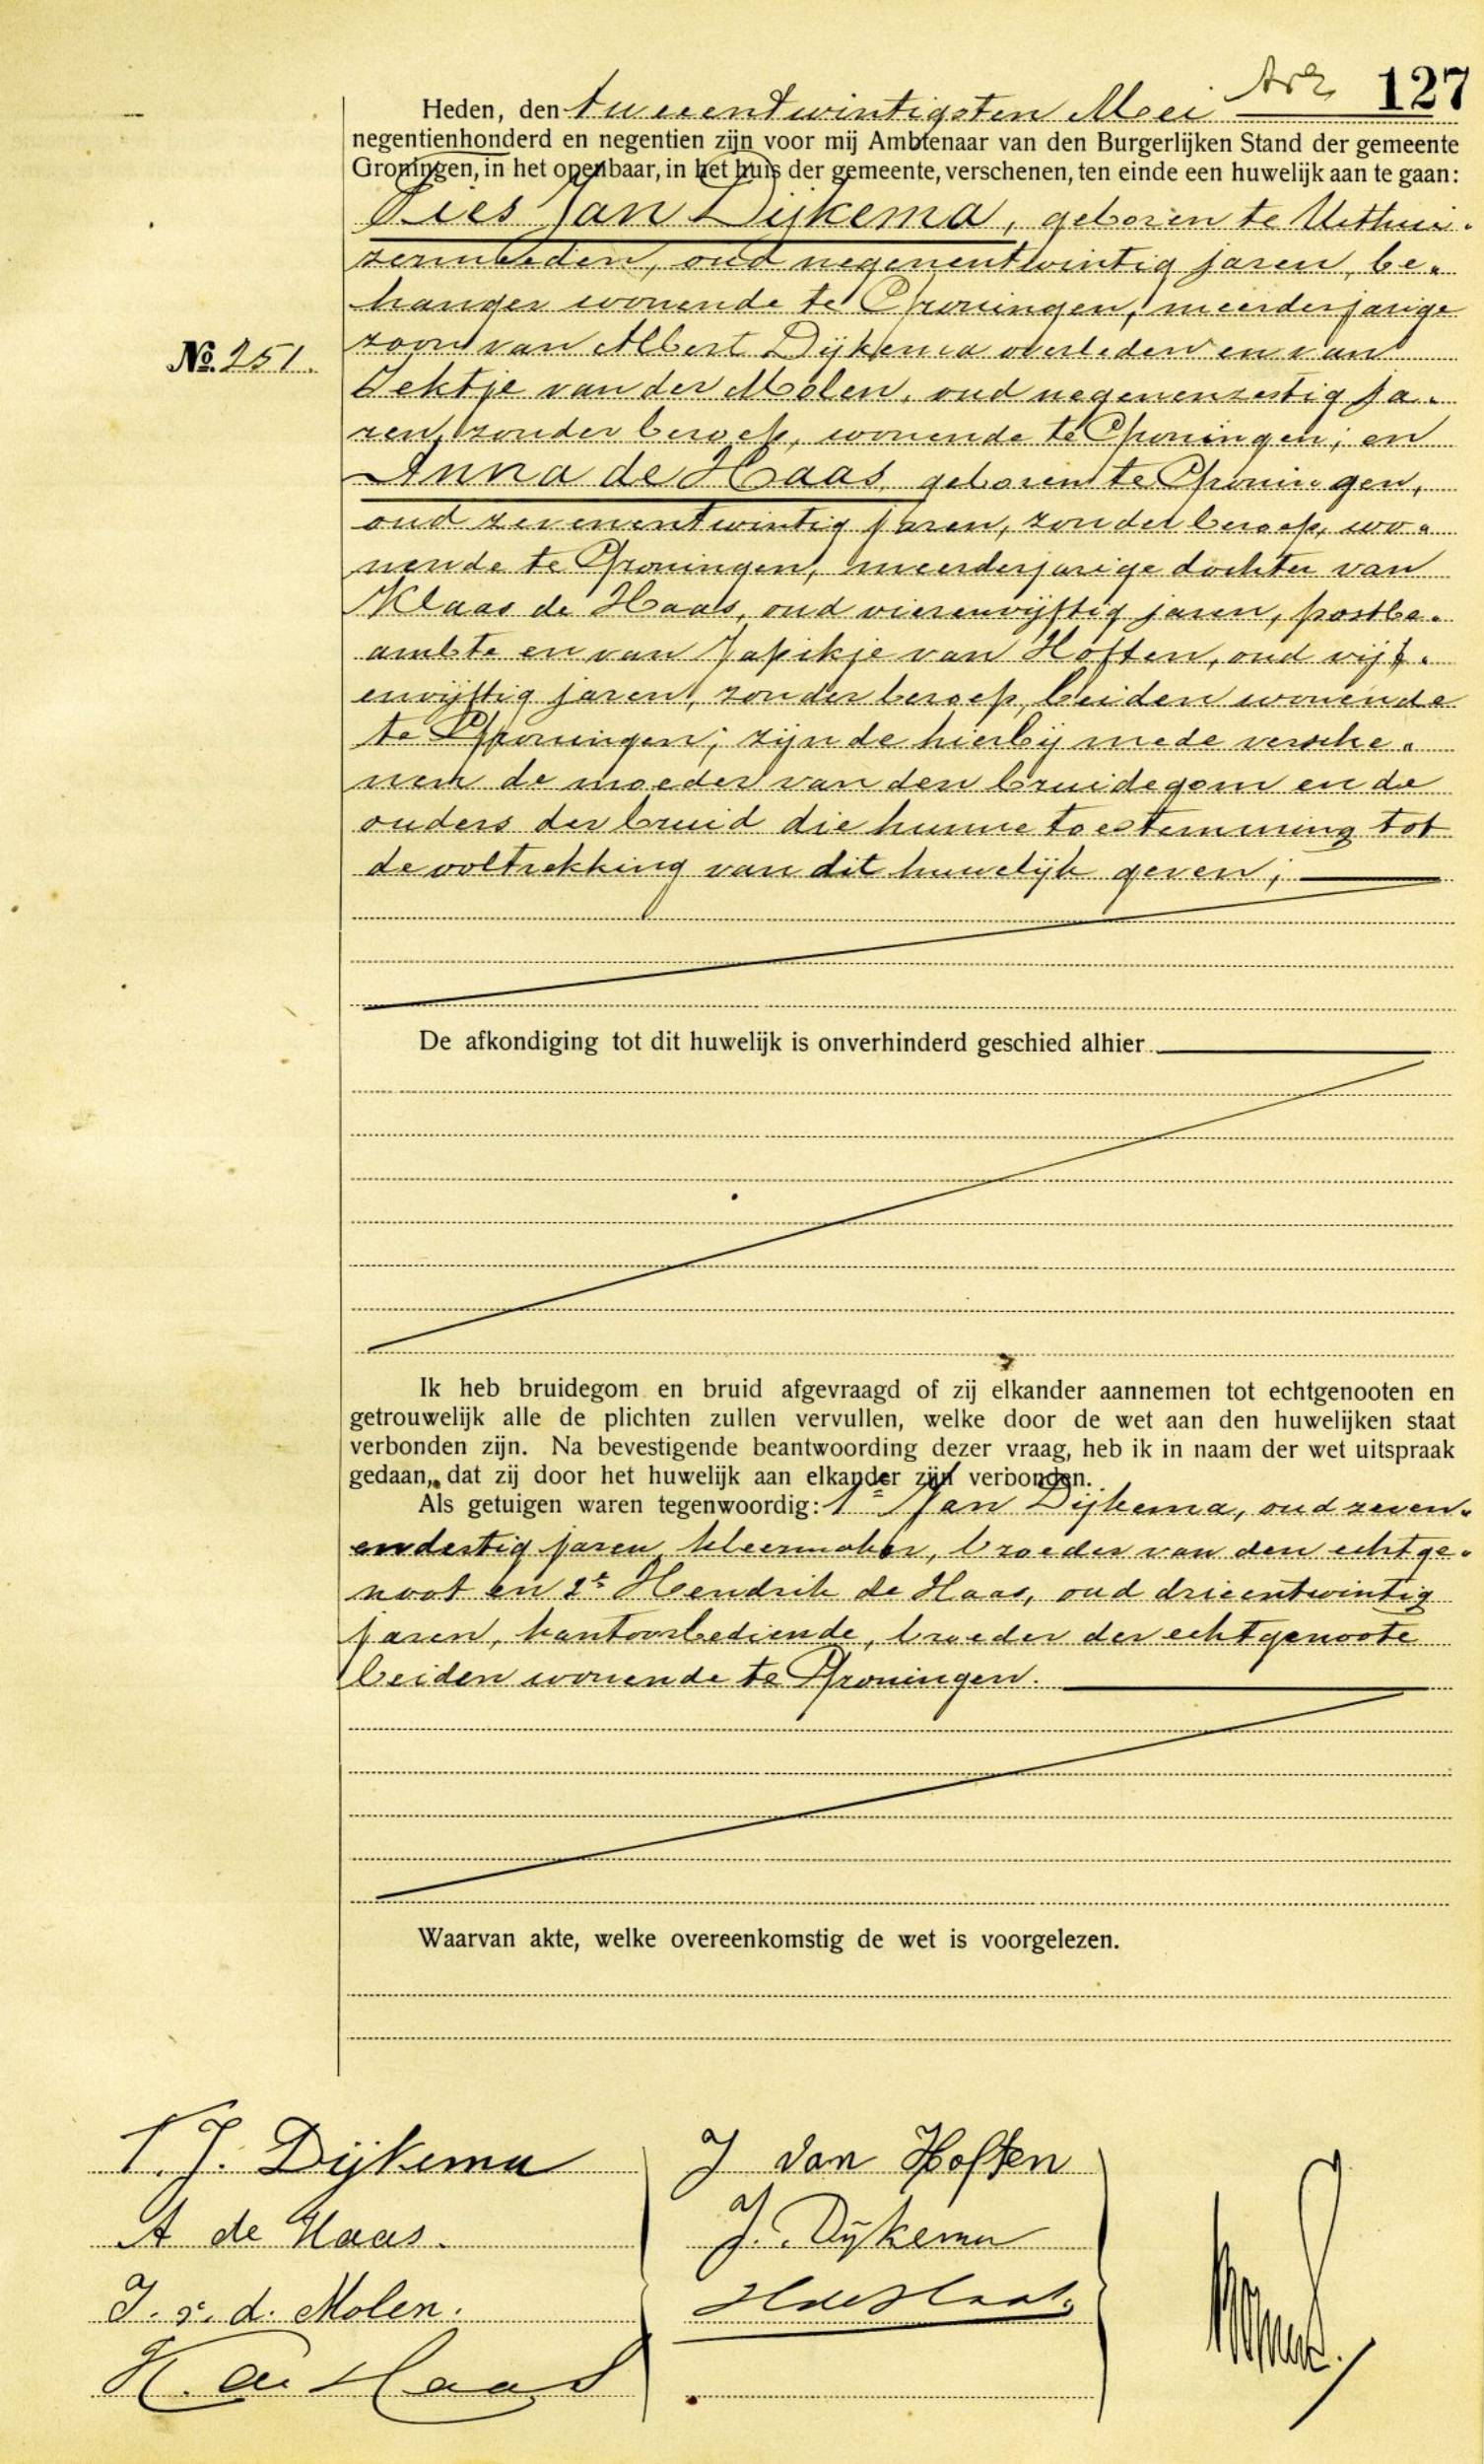 127
Heden, den tweeentwintigsten Mei
negentienhonderd en negentien zijn voor mij Ambtenaar van den Burgerlijken Stand der gemeente
Groningen, in het openbaar, in het huis der gemeente, verschenen, ten einde een huwelijk aan te gaan:
Jan Dijkema, geboren te Uithui-
zermeeden, oud negenentwintig jaren, be-
hanger wonende te Groningen, meerderjarige
No. 251.
zoon van Albert Dijkema overleden en van
van der Molen, oud negenenzestig ja-
ren, zonder beroep, wonende te Groningen; en
Anna de Haas, geboren te Groningen,
oud zevenentwintig jaren, zonder beroep, wo-
nende te Groningen, meerderjarige dochter van
Klaas de Haas, oud vierenvijftig jaren, postbe-
ambte en van Japikje van Hoften, oud vijf-
envijftig jaren, zonder beroep, beiden wonende
te Groningen; zijnde hierbij mede versche-
nen de moeder van den bruidegom en de
ouders der bruid die hunne toestemming tot
de voltrekking van dit huwelijk geven;
De afkondiging tot dit huwelijk is onverhinderd geschied alhier
Ik heb bruidegom en bruid afgevraagd of zij elkander aannemen tot echtgenooten en
getrouwelijk alle de plichten zullen vervullen, welke door de wet aan den huwelijken staat
verbonden zijn. Na bevestigende beantwoording dezer vraag, heb ik in naam der wet uitspraak
gedaan, dat zij door het huwelijk aan elkander zijn verbonden.
Als getuigen waren tegenwoordig: 1e Jan Dijkema, oud zeven-
endertig jaren, kleermaker, broeder van den echtge-
noot en 2e Hendrik de Haas, oud drieentwintig
jaren, kantoorbediende, broeder der echtgenoote
beiden wonende te Groningen.
Waarvan akte, welke overeenkomstig de wet is voorgelezen.
T. J. Dijkema
J van Hoften
A de Haas.
J. Dijkema
J. v. d. Molen.
H de Haas
K. de Haas